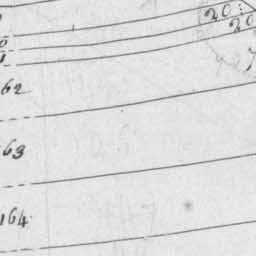 20:
20
62
63
164